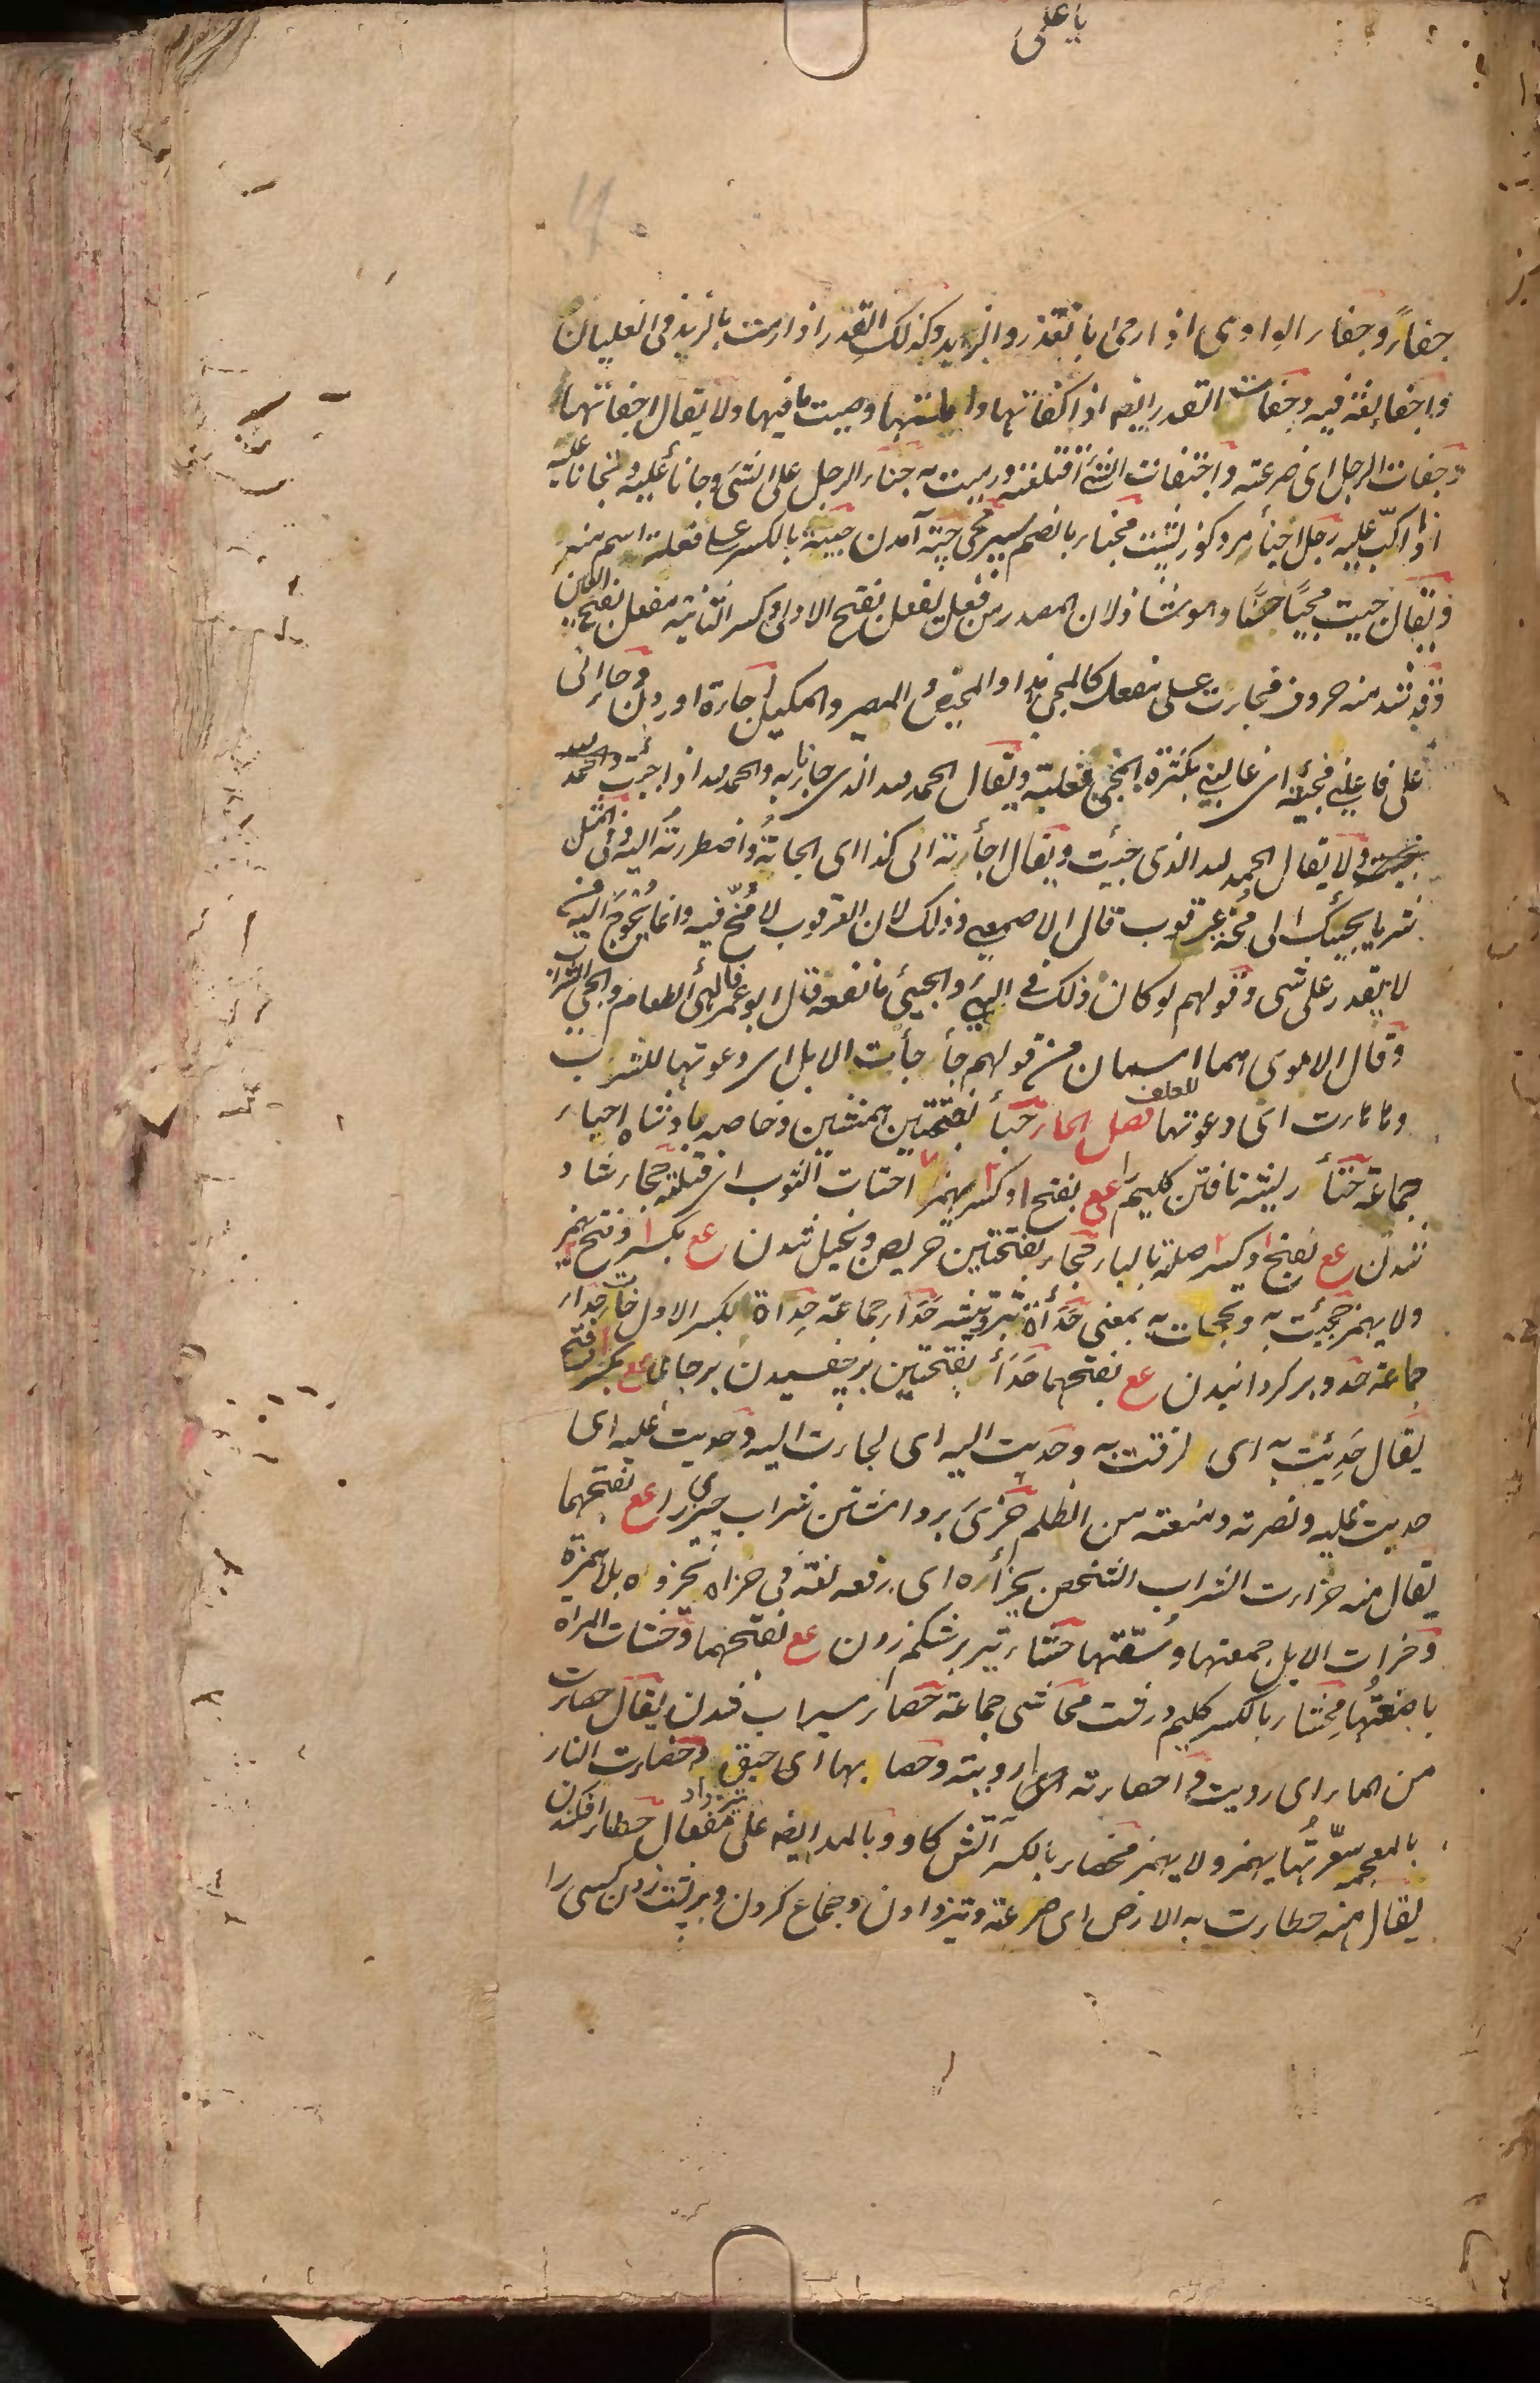 يا على
جفاءً وجفاء الوادى اذا رمى بالقذر والزبد وكذلك القدر اذا رمت بالزبد فى الغليان
واجفا لغة فيه وجفات القدر ايضا اذا كفاتها واملتها وصببت ما فيها ولا يقال اجفاتها
وجفات الرجل اى صرعته واجتفات الشئ اقتلعته ورميت به جناء الرجل على الشئ وجانأ عليه وتجانأ عليه
اذا اكبّ عليه رجل اجنأ مرد كوز پشت مجناء بالضم سپر مجى جيئة آمدن جيئة بالكسر على فعلة اسم منه
ويقال جيت مجيًا حسنًا وهو شاذ لان المصدر من فعل يفعل بفتح الاولى وكسر الثانية مفعل بفتح العين
وقد شذ منه حروف فجاءت على مفعل كالمجى والمحيض والمصير والمكيل جاءة اوردن وجاءانى
على فاعلنى فجيئته اى غالبنى بكثرة المجى فغلبته ويقال الحمد لله الذى جاء بك والحمد لله اذ جئت والحمد لله
ولا يقال الحمد لله الذى جيئت ويقال اجأته الى كذا اى الجاتهُ واضطررته اليه وفى المثل
شر ما يجيئك الى مُخّة عرقوب قال الاصمعى وذلك لان العرقوب لا مُخّ فيه وانما يُحوَج اليه من
لا يقدر على شى وقولهم لو كان ذلك فى الهئ والجيئ ما نفعه قال ابو عمرو الهئ الطعام والجئ الشراب
وقال الاموى هما اسمان من قولهم جأجأت الابل اى دعوتها للشرب
وهاهات اى دعوتها للعلف فصل الحاء حَبَأ بفتحتين همنشين وخاصه پادشاه احباء
جماعة حتأ ريشه تافتن كليم را عع بفتح ا وكسر بهمزا احتات الثوب اى فتلته حجاء شاد
شدن عع بفتح ا وكسر صلته بالباء حجاء بفتحتين حريص وبخيل شدن عع بكسر وفتح بهمز
ولا يهمز حجيئت به وتحجات به بمعنى حَدَأة تبر دو نيشه حَدَأ جماعة حِدَأة بكسر الاول خات حِدَاء
جماعة حدو بر كردانيدن عع بفتحهما حَدَأ بفتحتين بر چفسيدن بر جائى عع بكسر وفتح
يقال حَدِئت به اى لزقت به وحديت اليه اى لجات اليه وحديت عليه اى
حديت عليه ونصرته ومنعته من الظلم حزئ برداشتن شراب چيزى را عع بفتحهما
يقال منه حزات الشراب الشخص يحزأه اى رفعه لغة فى حزاه يحزوه بلا همزة
وحزات الابل جمعتها وسُقتها حشاء تير بر شكم زدن عع بفتحهما وحشات المراه
باضعتُها محشاء بالكسر كليم درشت محاشى جماعة حصأ سيراب شدن يقال حصات
من الماء اى رويت واحصاته اى ارويته وحصا بها اى حبق وحضات النار
بالمعجمه سعّرتُها يهمز ولا يهمز محضاء بالكسر آتش كاو وبالمد ايضا على مفعال حطاء افكندن
يقال منه حطات به الارض اى صرعته وتيز دادن وجماع كردن وبر پشت زدن كسى را